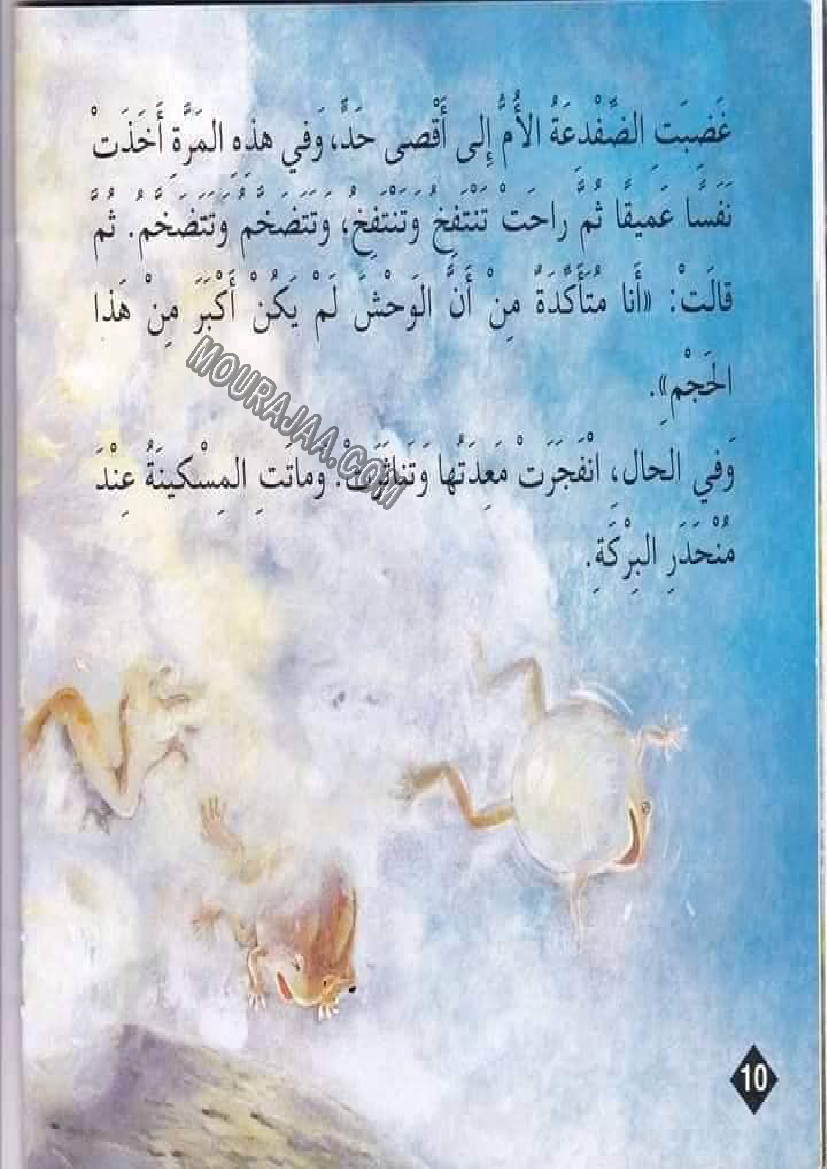 غَضِبَتِ الضِّفْدِعَةُ الأُمُّ إِلى أَقْصى حَدٍّ، وَفي هذِهِ المَرَّةِ أَخَذَتْ
نَفَسًا عَميقًا ثُمَّ راحَتْ تَنْتَفِخُ وَتَنْتَفِخُ، وَتَتَضَخَّمُ وَتَتَضَخَّمُ. ثُمَّ
قالَتْ: «أَنا مُتَأَكِّدَةٌ مِنْ أَنَّ الوَحْشَ لَمْ يَكُنْ أَكْبَرَ مِنْ هَذا
الحَجْمِ».
وَفي الحالِ، اِنْفَجَرَتْ مَعِدَتُها وَتَناثَرَتْ. وَماتَتِ المِسْكينَةُ عِنْدَ
مُنْحَدَرِ البِرْكَةِ.
MOURAJAA.COM
10